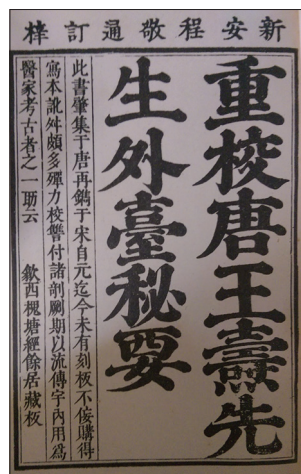 新安程敬通訂梓
重挍唐王燾先
生外臺秘要
此書肇集于唐再鐫于宋自元迄今未有刻板不佞購得
寫本訛舛頗多殫力校讐付諸剞劂期以流傳宇內用爲
醫家考古者之一助云　歙西槐塘經餘居藏板